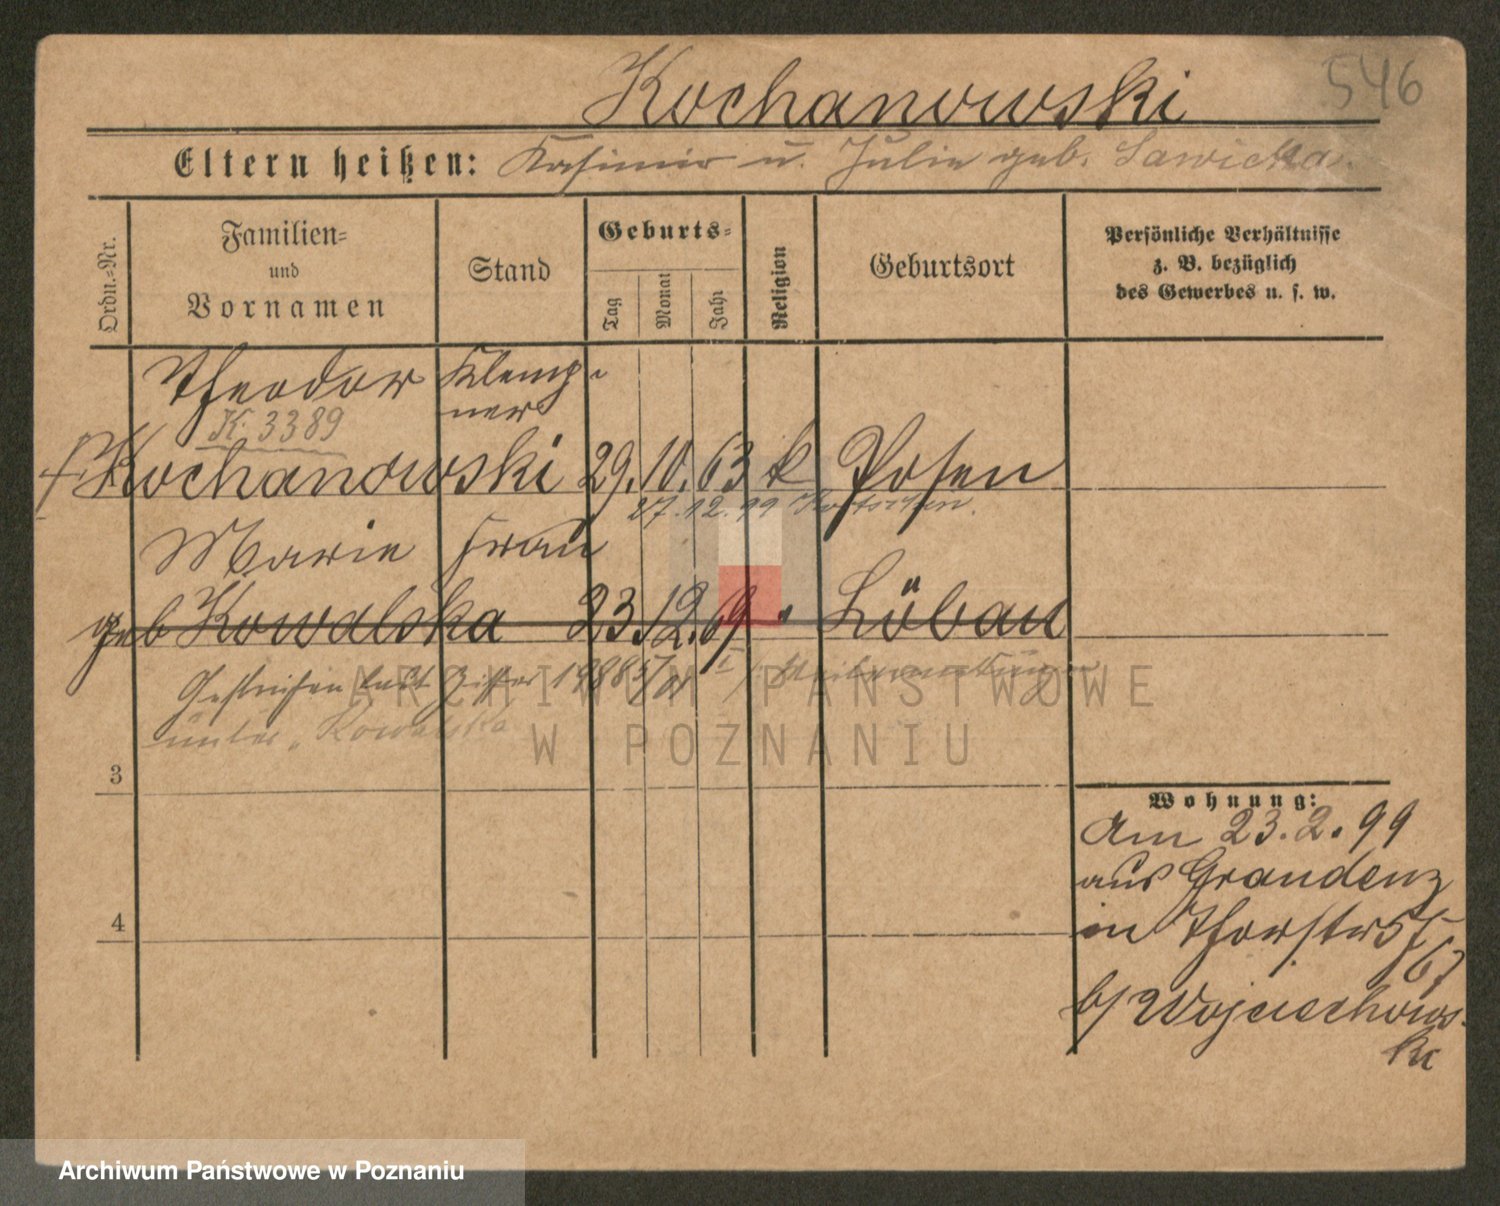 546
Kochanowski
Eltern heißen: Kasimir u. Julie geb. Sawicka.
Ordn.-Nr.
Familien-
und
Vornamen
Stand
Geburts-
Tag
Monat
Jahr
Religion
Geburtsort
Persönliche Verhältnisse
z. B. bezüglich
des Gewerbes u. s. w.
Theodor Klemp-
K. 3389 ner
† Kochanowski 29. 10. 63 k Posen
27.12.99
Marie Frau
geb Kowalska 23. 12. 69 " Löbau
Gestrichen laut Ziffer
unter "Kowalska
ARCHIWUM PAŃSTWOWE
W POZNANIU
3
4
Wohnung:
Am 23.2.99
aus Graudenz
in Thorstr 5
b/ Wojciechows-
ki
Archiwum Państwowe w Poznaniu